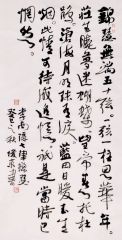 錦瑟無端五十弦一弦一柱思華年
莊生曉夢迷蝴蝶望帝春心托杜
鵑滄海月明珠有淚藍田日暖玉生
煙此情可待成追憶只是當時已
惘然
李商隱